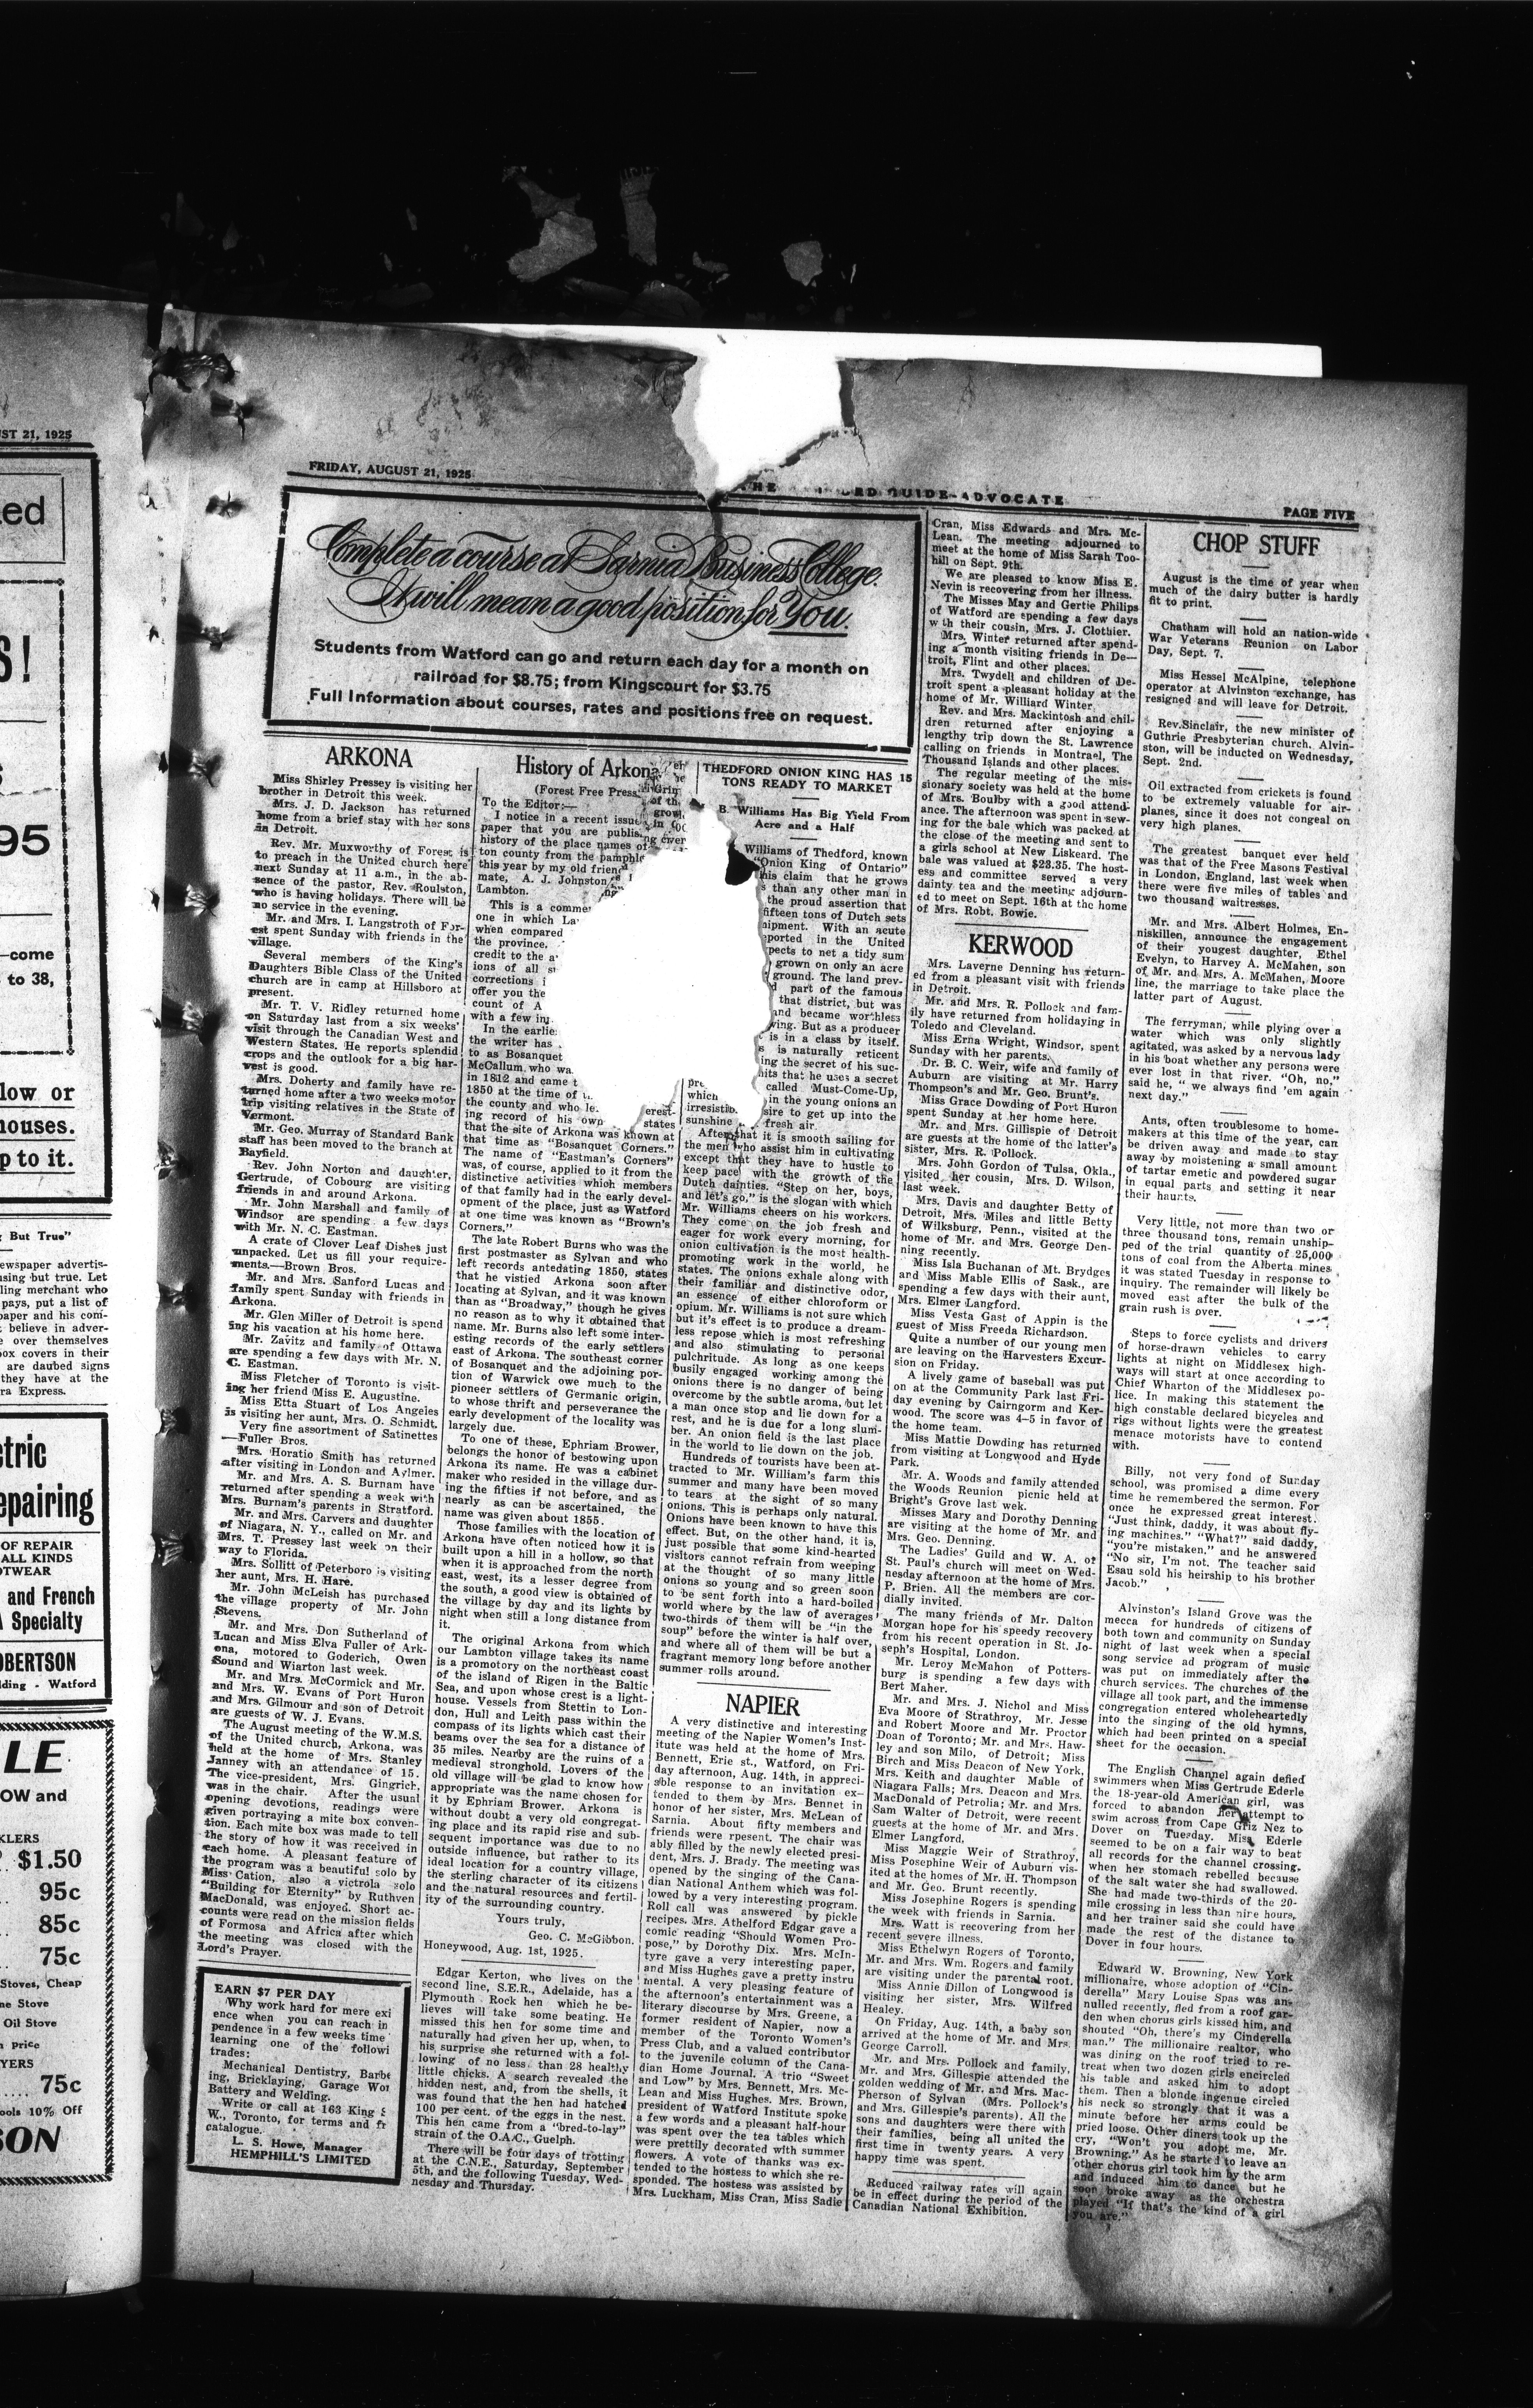 ST 21, 1925
FRIDAY, AUGUST 21, 1925
GUIDE-ADVOCATE
PAGE FIVE
Complete a course at Sarnia Business College.
It will mean a good position for You.
Students from Watford can go and return each day for a month on
railroad for $8.75; from Kingscourt for $3.75
Full Information about courses, rates and positions free on request.
ARKONA
Miss Shirley Pressey is visiting her
brother in Detroit this week.
Mrs. J. D. Jackson has returned
home from a brief stay with her sons
in Detroit.
Rev. Mr. Muxworthy of Forest is
to preach in the United church here
next Sunday at 11 a.m., in the ab-
sence of the pastor, Rev. Roulston,
who is having holidays. There will be
no service in the evening.
Mr. and Mrs. I. Langstroth of For-
est spent Sunday with friends in the
village.
Several members of the King's
Daughters Bible Class of the United
church are in camp at Hillsboro at
present.
Mr. T. V. Ridley returned home
on Saturday last from a six weeks'
visit through the Canadian West and
Western States. He reports splendid
crops and the outlook for a big har-
vest is good.
Mrs. Doherty and family have re-
turned home after a two weeks motor
trip visiting relatives in the State of
Vermont.
Mr. Geo. Murray of Standard Bank
staff has been moved to the branch at
Bayfield.
Rev. John Norton and daughter,
Gertrude, of Cobourg are visiting
friends in and around Arkona.
Mr. John Marshall and family of
Windsor are spending a few days
with Mr. N. C. Eastman.
A crate of Clover Leaf Dishes just
unpacked. Let us fill your require-
ments.—Brown Bros.
Mr. and Mrs. Sanford Lucas and
family spent Sunday with friends in
Arkona.
Mr. Glen Miller of Detroit is spend
ing his vacation at his home here.
Mr. Zavitz and family of Ottawa
are spending a few days with Mr. N.
C. Eastman.
Miss Fletcher of Toronto is visit-
ing her friend Miss E. Augustine.
Miss Etta Stuart of Los Angeles
is visiting her aunt, Mrs. O. Schmidt.
Very fine assortment of Satinettes
—Fuller Bros.
Mrs. Horatio Smith has returned
after visiting in London and Aylmer.
Mr. and Mrs. A. S. Burnam have
returned after spending a week with
Mrs. Burnam's parents in Stratford.
Mr. and Mrs. Carvers and daughter
of Niagara, N. Y., called on Mr. and
Mrs. T. Pressey last week on their
way to Florida.
Mrs. Sollitt of Peterboro is visiting
her aunt, Mrs. H. Hare.
Mr. John McLeish has purchased
the village property of Mr. John
Stevens.
Mr. and Mrs. Don Sutherland of
Lucan and Miss Elva Fuller of Ark-
ona, motored to Goderich, Owen
Sound and Wiarton last week.
Mr. and Mrs. McCormick and Mr.
and Mrs. W. Evans of Port Huron
and Mrs. Gilmour and son of Detroit
are guests of W. J. Evans.
The August meeting of the W.M.S.
of the United church, Arkona, was
held at the home of Mrs. Stanley
Janney with an attendance of 15.
The vice-president, Mrs. Gingrich,
was in the chair. After the usual
opening devotions, readings were
given portraying a mite box conven-
tion. Each mite box was made to tell
the story of how it was received in
each home. A pleasant feature of
the program was a beautiful solo by
Miss Cation, also a victrola solo
"Building for Eternity" by Ruthven
MacDonald, was enjoyed. Short ac-
counts were read on the mission fields
of Formosa and Africa after which
the meeting was closed with the
Lord's Prayer.
EARN $7 PER DAY
Why work hard for mere exi
ence when you can reach in
pendence in a few weeks time
learning one of the followi
trades:
Mechanical Dentistry, Barbe
ing, Bricklaying, Garage Wor
Battery and Welding.
Write or call at 163 King
W., Toronto, for terms and fr
catalogue.
L. S. Howe, Manager
HEMPHILL'S LIMITED
History of Arkona
(Forest Free Press
To the Editor:—
I notice in a recent issue
paper that you are publis
history of the place names of
ton county from the pamphle
this year by my old friend
mate, A. J. Johnston
Lambton.
This is a comme
one in which La
when compared
the province.
credit to the a
ions of all s
corrections i
offer you the
count of A
with a few in
In the earlie
the writer has
to as Bosanquet
McCallum, who wa
in 1812 and came t
1850 at the time of
the county and who le erest-
ing record of his own states
that the site of Arkona was known at
that time as "Bosanquet Corners."
The name of "Eastman's Corners"
was, of course, applied to it from the
distinctive activities which members
of that family had in the early devel-
opment of the place, just as Watford
at one time was known as "Brown's
Corners."
The late Robert Burns who was the
first postmaster as Sylvan and who
left records antedating 1850, states
that he vistied Arkona soon after
locating at Sylvan, and it was known
than as "Broadway," though he gives
no reason as to why it obtained that
name. Mr. Burns also left some inter-
esting records of the early settlers
east of Arkona. The southeast corner
of Bosanquet and the adjoining por-
tion of Warwick owe much to the
pioneer settlers of Germanic origin,
to whose thrift and perseverance the
early development of the locality was
largely due.
To one of these, Ephriam Brower,
belongs the honor of bestowing upon
Arkona its name. He was a cabinet
maker who resided in the village dur-
ing the fifties if not before, and as
nearly as can be ascertained, the
name was given about 1855.
Those families with the location of
Arkona have often noticed how it is
built upon a hill in a hollow, so that
when it is approached from the north
east, west, its a lesser degree from
the south, a good view is obtained of
the village by day and its lights by
night when still a long distance from
it.
The original Arkona from which
our Lambton village takes its name
is a promotory on the northeast coast
of the island of Rigen in the Baltic
Sea, and upon whose crest is a light-
house. Vessels from Stettin to Lon-
don, Hull and Leith pass within the
compass of its lights which cast their
beams over the sea for a distance of
35 miles. Nearby are the ruins of a
medieval stronghold. Lovers of the
old village will be glad to know how
appropriate was the name chosen for
it by Ephriam Brower. Arkona is
without doubt a very old congregat-
ing place and its rapid rise and sub-
sequent importance was due to no
outside influence, but rather to its
ideal location for a country village,
the sterling character of its citizens
and the natural resources and fertil-
ity of the surrounding country.
Yours truly,
Geo. C. McGibbon.
Honeywood, Aug. 1st, 1925.
Edgar Kerton, who lives on the
second line, S.E.R., Adelaide, has a
Plymouth Rock hen which he be-
lieves will take some beating. He
missed this hen for some time and
naturally had given her up, when, to
his surprise she returned with a fol-
lowing of no less than 28 healthy
little chicks. A search revealed the
hidden nest, and, from the shells, it
was found that the hen had hatched
100 per cent. of the eggs in the nest.
This hen came from a "bred-to-lay"
strain of the O.A.C., Guelph.
There will be four days of trotting
at the C.N.E., Saturday, September
5th, and the following Tuesday, Wed-
nesday and Thursday.
THEDFORD ONION KING HAS 15
TONS READY TO MARKET
B. Williams Has Big Yield From
Acre and a Half
Williams of Thedford, known
"Onion King of Ontario"
his claim that he grows
than any other man in
the proud assertion that
fifteen tons of Dutch sets
hipment. With an acute
ported in the United
pects to net a tidy sum
grown on only an acre
ground. The land prev-
part of the famous
that district, but was
and became worthless
ving. But as a producer
is in a class by itself.
is naturally reticent
ing the secret of his suc-
hits that he uses a secret
pre called Must-Come-Up,
which in the young onions an
irresistib sire to get up into the
sunshine fresh air.
After that it is smooth sailing for
the men who assist him in cultivating
except that they have to hustle to
keep pace with the growth of the
Dutch dainties. "Step on her, boys,
and let's go," is the slogan with which
Mr. Williams cheers on his workers.
They come on the job fresh and
eager for work every morning, for
onion cultivation is the most health-
promoting work in the world, he
states. The onions exhale along with
their familiar and distinctive odor,
an essence of either chloroform or
opium. Mr. Williams is not sure which
but it's effect is to produce a dream-
less repose which is most refreshing
and also stimulating to personal
pulchritude. As long as one keeps
busily engaged working among the
onions there is no danger of being
overcome by the subtle aroma, but let
a man once stop and lie down for a
rest, and he is due for a long slum-
ber. An onion field is the last place
in the world to lie down on the job.
Hundreds of tourists have been at-
tracted to Mr. William's farm this
summer and many have been moved
to tears at the sight of so many
onions. This is perhaps only natural.
Onions have been known to have this
effect. But, on the other hand, it is,
just possible that some kind-hearted
visitors cannot refrain from weeping
at the thought of so many little
onions so young and so green soon
to be sent forth into a hard-boiled
world where by the law of averages
two-thirds of them will be "in the
soup" before the winter is half over,
and where all of them will be but a
fragrant memory long before another
summer rolls around.
NAPIER
A very distinctive and interesting
meeting of the Napier Women's Inst-
itute was held at the home of Mrs.
Bennett, Erie st., Watford, on Fri-
day afternoon, Aug. 14th, in appreci-
able response to an invitation ex-
tended to them by Mrs. Bennet in
honor of her sister, Mrs. McLean of
Sarnia. About fifty members and
friends were rpesent. The chair was
ably filled by the newly elected presi-
dent, Mrs. J. Brady. The meeting was
opened by the singing of the Cana-
dian National Anthem which was fol-
lowed by a very interesting program.
Roll call was answered by pickle
recipes. Mrs. Athelford Edgar gave a
comic reading "Should Women Pro-
pose," by Dorothy Dix. Mrs. McIn-
tyre gave a very interesting paper,
and Miss Hughes gave a pretty instru
mental. A very pleasing feature of
the afternoon's entertainment was a
literary discourse by Mrs. Greene, a
former resident of Napier, now a
member of the Toronto Women's
Press Club, and a valued contributor
to the juvenile column of the Cana-
dian Home Journal. A trio "Sweet
and Low" by Mrs. Bennett, Mrs. Mc-
Lean and Miss Hughes. Mrs. Brown,
president of Watford Institute spoke
a few words and a pleasant half-hour
was spent over the tea tables which
were prettily decorated with summer
flowers. A vote of thanks was ex-
tended to the hostess to which she re-
sponded. The hostess was assisted by
Mrs. Luckham, Miss Cran, Miss Sadie
Cran, Miss Edwards and Mrs. Mc-
Lean. The meeting adjourned to
meet at the home of Miss Sarah Too-
hill on Sept. 9th.
We are pleased to know Miss E.
Nevin is recovering from her illness.
The Misses May and Gertie Philips
of Watford are spending a few days
w th their cousin, Mrs. J. Clothier.
Mrs. Winter returned after spend-
ing a month visiting friends in De—
troit, Flint and other places.
Mrs. Twydell and children of De-
troit spent a pleasant holiday at the
home of Mr. Williard Winter
Rev. and Mrs. Mackintosh and chil-
dren returned after enjoying a
lengthy trip down the St. Lawrence
calling on friends in Montrael, The
Thousand Islands and other places.
The regular meeting of the mis-
sionary society was held at the home
of Mrs. Boulby with a good attend-
ance. The afternoon was spent in sew-
ing for the bale which was packed at
the close of the meeting and sent to
a girls school at New Liskeard. The
bale was valued at $23.35. The host-
ess and committee served a very
dainty tea and the meeting adjourn-
ed to meet on Sept. 16th at the home
of Mrs. Robt. Bowie.
KERWOOD
Mrs. Laverne Denning has return-
ed from a pleasant visit with friends
in Detroit.
Mr. and Mrs. R. Pollock and fam-
ily have returned from holidaying in
Toledo and Cleveland.
Miss Erna Wright, Windsor, spent
Sunday with her parents.
Dr. B. C. Weir, wife and family of
Auburn are visiting at Mr. Harry
Thompson's and Mr. Geo. Brunt's.
Miss Grace Dowding of Port Huron
spent Sunday at her home here.
Mr. and Mrs. Gillispie of Detroit
are guests at the home of the latter's
sister, Mrs. R. Pollock.
Mrs. John Gordon of Tulsa, Okla.,
visited her cousin, Mrs. D. Wilson,
last week.
Mrs. Davis and daughter Betty of
Detroit, Mrs. Miles and little Betty
of Wilksburg, Penn., visited at the
home of Mr. and Mrs. George Den-
ning recently.
Miss Isla Buchanan of Mt. Brydges
and Miss Mable Ellis of Sask., are
spending a few days with their aunt,
Mrs. Elmer Langford.
Miss Vesta Gast of Appin is the
guest of Miss Freeda Richardson.
Quite a number of our young men
are leaving on the Harvesters Excur-
sion on Friday.
A lively game of baseball was put
on at the Community Park last Fri-
day evening by Cairngorm and Ker-
wood. The score was 4-5 in favor of
the home team.
Miss Mattie Dowding has returned
from visiting at Longwood and Hyde
Park.
Mr. A. Woods and family attended
the Woods Reunion picnic held at
Bright's Grove last wek.
Misses Mary and Dorothy Denning
are visiting at the home of Mr. and
Mrs. Geo. Denning.
The Ladies' Guild and W. A. of
St. Paul's church will meet on Wed-
nesday afternoon at the home of Mrs.
P. Brien. All the members are cor-
dially invited.
The many friends of Mr. Dalton
Morgan hope for his speedy recovery
from his recent operation in St. Jo-
seph's Hospital, London.
Mr. Leroy McMahon of Potters-
burg is spending a few days with
Bert Maher.
Mr. and Mrs. J. Nichol and Miss
Eva Moore of Strathroy, Mr. Jesse
and Robert Moore and Mr. Proctor
Doan of Toronto; Mr. and Mrs. Haw-
ley and son Milo, of Detroit; Miss
Birch and Miss Deacon of New York,
Mrs. Keith and daughter Mable of
Niagara Falls; Mrs. Deacon and Mrs.
MacDonald of Petrolia; Mr. and Mrs.
Sam Walter of Detroit, were recent
guests at the home of Mr. and Mrs.
Elmer Langford.
Miss Maggie Weir of Strathroy,
Miss Posephine Weir of Auburn vis-
ited at the homes of Mr. H. Thompson
and Mr. Geo. Brunt recently.
Miss Josephine Rogers is spending
the week with friends in Sarnia.
Mrs. Watt is recovering from her
recent severe illness.
Miss Ethelwyn Rogers of Toronto,
Mr. and Mrs. Wm. Rogers and family
are visiting under the parental root.
Miss Annie Dillon of Longwood is
visiting her sister, Mrs. Wilfred
Healey.
On Friday, Aug. 14th, a baby son
arrived at the home of Mr. and Mrs.
George Carroll.
Mr. and Mrs. Pollock and family,
Mr. and Mrs. Gillespie attended the
golden wedding of Mr. and Mrs. Mac-
Pherson of Sylvan (Mrs. Pollock's
and Mrs. Gillespie's parents). All the
sons and daughters were there with
their families, being all united the
first time in twenty years. A very
happy time was spent.
Reduced railway rates will again
be in effect during the period of the
Canadian National Exhibition.
CHOP STUFF
August is the time of year when
much of the dairy butter is hardly
fit to print.
Chatham will hold an nation-wide
War Veterans Reunion on Labor
Day, Sept. 7.
Miss Hessel McAlpine, telephone
operator at Alvinston exchange, has
resigned and will leave for Detroit.
Rev.Sinclair, the new minister of
Guthrie Presbyterian church, Alvin-
ston, will be inducted on Wednesday,
Sept. 2nd.
Oil extracted from crickets is found
to be extremely valuable for air-
planes, since it does not congeal on
very high planes.
The greatest banquet ever held
was that of the Free Masons Festival
in London, England, last week when
there were five miles of tables and
two thousand waitresses.
Mr. and Mrs. Albert Holmes, En-
niskillen, announce the engagement
of their yougest daughter, Ethel
Evelyn, to Harvey A. McMahen, son
of Mr. and Mrs. A. McMahen, Moore
line, the marriage to take place the
latter part of August.
The ferryman, while plying over a
water which was only slightly
agitated, was asked by a nervous lady
in his boat whether any persons were
ever lost in that river. "Oh, no,"
said he, " we always find 'em again
next day."
Ants, often troublesome to home-
makers at this time of the year, can
be driven away and made to stay
away by moistening a small amount
of tartar emetic and powdered sugar
in equal parts and setting it near
their haunts.
Very little, not more than two or
three thousand tons, remain unship-
ped of the trial quantity of 25,000
tons of coal from the Alberta mines
it was stated Tuesday in response to
inquiry. The remainder will likely be
moved east after the bulk of the
grain rush is over.
Steps to force cyclists and drivers
of horse-drawn vehicles to carry
lights at night on Middlesex high-
ways will start at once according to
Chief Wharton of the Middlesex po-
lice. In making this statement the
high constable declared bicycles and
rigs without lights were the greatest
menace motorists have to contend
with.
Billy, not very fond of Sunday
school, was promised a dime every
time he remembered the sermon. For
once he expressed great interest.
"Just think, daddy, it was about fly-
ing machines." "What?" said daddy,
"you're mistaken," and he answered
"No sir, I'm not. The teacher said
Esau sold his heirship to his brother
Jacob."
Alvinston's Island Grove was the
mecca for hundreds of citizens of
both town and community on Sunday
night of last week when a special
song service ad program of music
was put on immediately after the
church services. The churches of the
village all took part, and the immense
congregation entered wholeheartedly
into the singing of the old hymns,
which had been printed on a special
sheet for the occasion.
The English Channel again defied
swimmers when Miss Gertrude Ederle
the 18-year-old American girl, was
forced to abandon her attempt to
swim across from Cape Griz Nez to
Dover on Tuesday. Miss Ederle
seemed to be on a fair way to beat
all records for the channel crossing,
when her stomach rebelled because
of the salt water she had swallowed.
She had made two-thirds of the 20-
mile crossing in less than nire hours,
and her trainer said she could have
made the rest of the distance to
Dover in four hours.
Edward W. Browning, New York
millionaire, whose adoption of "Cin-
derella" Mary Louise Spas was an-
nulled recently, fled from a roof gar-
den when chorus girls kissed him, and
shouted "Oh, there's my Cinderella
man." The millionaire realtor, who
was dining on the roof tried to re-
treat when two dozen girls encircled
his table and asked him to adopt
them. Then a blonde ingenue circled
his neck so strongly that it was a
minute before her arms could be
pried loose. Other diners took up the
cry, "Won't you adopt me, Mr.
Browning." As he started to leave an
other chorus girl took him by the arm
and induced him to dance but he
soon broke away as the orchestra
played "If that's the kind of a girl
you are."
ed
S!
95
—come
to 38,
low or
houses.
p to it.
But True"
ewspaper advertis-
ising but true. Let
ling merchant who
pays, put a list of
paper and his com-
believe in adver-
over themselves
ox covers in their
are daubed signs
they have at the
ra Express.
tric
epairing
OF REPAIR
ALL KINDS
OTWEAR
and French
A Specialty
OBERTSON
lding - Watford
LE
OW and
KLERS
$1.50
95c
85c
75c
Stoves, Cheap
ne Stove
Oil Stove
Price
YERS
75c
ools 10% Off
SON